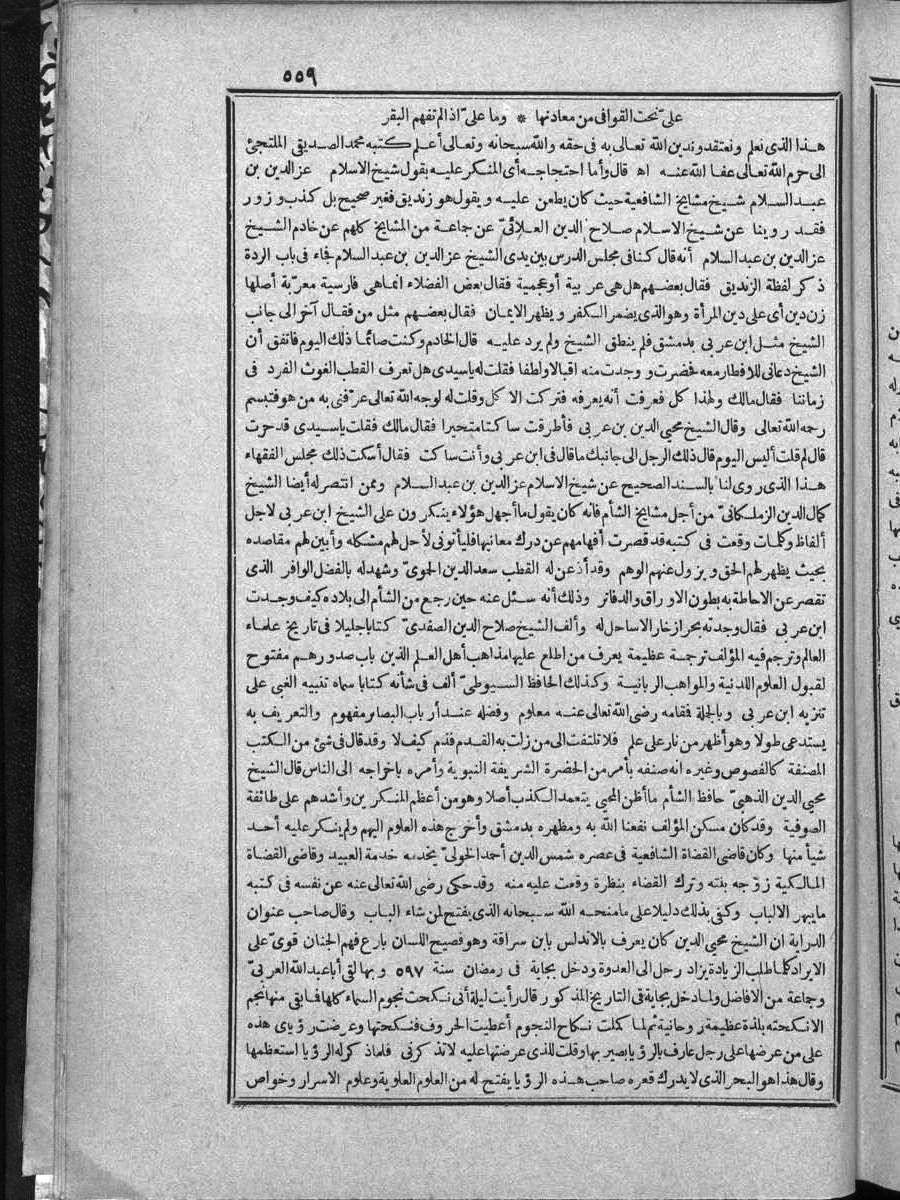 ٥٥٩
علىّ نحت القوافى من معادنها * وما علىّ اذا لم تفهم البقر
هذا الذى نعلم ونعتقد وندين الله تعالى به فى حقه والله سبحانه وتعالى أعلم كتبه محمد الصديقى الملتجئ
الى حرم الله تعالى عفا الله عنه اه قال وأما احتجاجه أى المنكر عليه بقول شيخ الاسلام عز الدين بن
عبد السلام شيخ مشايخ الشافعية حيث كان يطعن عليه ويقول هو زنديق فغير صحيح بل كذب وزور
فقد روينا عن شيخ الاسلام صلاح الدين العلائىّ عن جماعة من المشايخ كلهم عن خادم الشيخ
عز الدين بن عبد السلام أنه قال كنا فى مجلس الدرس بين يدى الشيخ عز الدين بن عبد السلام فجاء فى باب الردة
ذكر لفظة الزنديق فقال بعضهم هل هى عربية أو عجمية فقال بعض الفضلاء انما هى فارسية معرّبة أصلها
زن دين أى على دين المرأة وهو الذى يضمر الكفر ويظهر الايمان فقال بعضهم مثل من فقال آخر الى جانب
الشيخ مثل ابن عربى بدمشق فلم ينطق الشيخ ولم يرد عليه قال الخادم وكنت صائما ذلك اليوم فاتفق أن
الشيخ دعانى للافطار معه فحضرت ووجدت منه اقبالا ولطفا فقلت له ياسيدى هل تعرف القطب الغوث الفرد فى
زماننا فقال مالك ولهذا كل فعرفت أنه يعرفه فتركت الاكل وقلت له لوجه الله تعالى عرّفنى به من هو فتبسم
رحمه الله تعالى وقال الشيخ محيى الدين بن عربى فأطرقت ساكتا متحيرا فقال مالك فقلت ياسيدى قد حرت
قال لم قلت أليس اليوم قال ذلك الرجل الى جانبك ما قال فى ابن عربى وأنت ساكت فقال أسكت ذلك مجلس الفقهاء
هذا الذى روى لنا بالسند الصحيح عن شيخ الاسلام عز الدين بن عبد السلام وممن انتصر له أيضا الشيخ
كمال الدين الزملكانىّ من أجل مشايخ الشأم فانه كان يقول ما أجهل هؤلاء ينكرون على الشيخ ابن عربى لاجل
ألفاظ وكلمات وقعت فى كتبه قد قصرت أفهامهم عن درك معانيها فليأتونى لأحل لهم مشكله وأبين لهم مقاصده
بحيث يظهر لهم الحق ويزول عنهم الوهم وقد أذعن له القطب سعد الدين الحموىّ وشهد له بالفضل الوافر الذى
تقصر عن الاحاطة به بطون الاوراق والدفاتر وذلك أنه سئل عنه حين رجع من الشأم الى بلاده كيف وجدت
ابن عربى فقال وجدته بحرا زخارا لا ساحل له وألف الشيخ صلاح الدين الصفدىّ كتابا جليلا فى تاريخ علماء
العالم وترجم فيه المؤلف ترجمة عظيمة يعرف من اطلع عليها مذاهب أهل العلم الذين باب صدورهم مفتوح
لقبول العلوم اللدنية والمواهب الربانية وكذلك الحافظ السيوطىّ ألف فى شأنه كتابا سماه تنبيه الغبى على
تنزيه ابن عربى وبالجملة فقامه رضى الله تعالى عنه معلوم وفضله عند أرباب البصائر مفهوم والتعريف به
يستدعى طولا وهو أظهر من نار على علم فلا تلتفت الى من زلت به القدم فذم كيف لا وقد قال فى شئ من الكتب
المصنفة كالفصوص وغيره انه صنفه بأمر من الحضرة الشريفة النبوية وأمره باخراجه الى الناس قال الشيخ
محيى الدين الذهبىّ حافظ الشأم ما أظن المحيى يتعمد الكذب أصلا وهو من أعظم المنكرين وأشدهم على طائفة
الصوفية وقد كان مسكن المؤلف نفعنا الله به ومظهره بدمشق وأخرج هذه العلوم اليهم ولم ينكر عليه أحد
شيأ منها وكان قاضى القضاة الشافعية فى عصره شمس الدين أحمد الخولىّ يخدمه خدمة العبيد وقاضى القضاة
المالكية زوّجه بنته وترك القضاء بنظرة وقعت عليه منه وقد حكى رضى الله تعالى عنه عن نفسه فى كتبه
ما يبهر الالباب وكفى بذلك دليلا على ما منحه الله سبحانه الذى يفتح لمن شاء الباب وقال صاحب عنوان
الدراية ان الشيخ محيى الدين كان يعرف بالاندلس بابن سراقة وهو فصيح اللسان بارع فهم الجنان قوىّ على
الايراد كلما طلب الزيادة يزاد رحل الى العدوة ودخل بجاية فى رمضان سنة ٥٩٧ وبها لقى أبا عبد الله العربىّ
وجماعة من الافاضل ولما دخل بجاية فى التاريخ المذكور قال رأيت ليلة أنى نكحت نجوم السماء كلها فما بقى منها نجم
الا نكحته بلذة عظيمة روحانية ثم لما كملت نكاح النجوم أعطيت الحروف فنكحتها وعرضت رؤياى هذه
على من عرضها على رجل عارف بالرؤيا بصير بها وقلت للذى عرضتها عليه لا تذكرنى فلما ذكر له الرؤيا استعظمها
وقال هذا هو البحر الذى لا يدرك قعره صاحب هذه الرؤيا يفتح له من العلوم العلوية وعلوم الاسرار وخواص